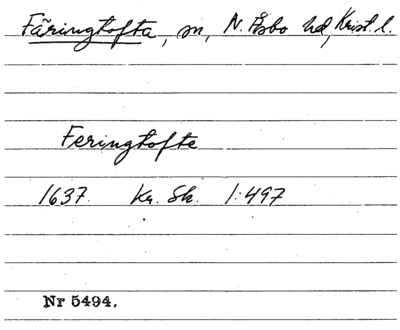 Färingtofta, sn, N. Åsbo hd, Krist. l.
Feringtofte
1637. Kr. Sk. 1:497
Nr 5494.